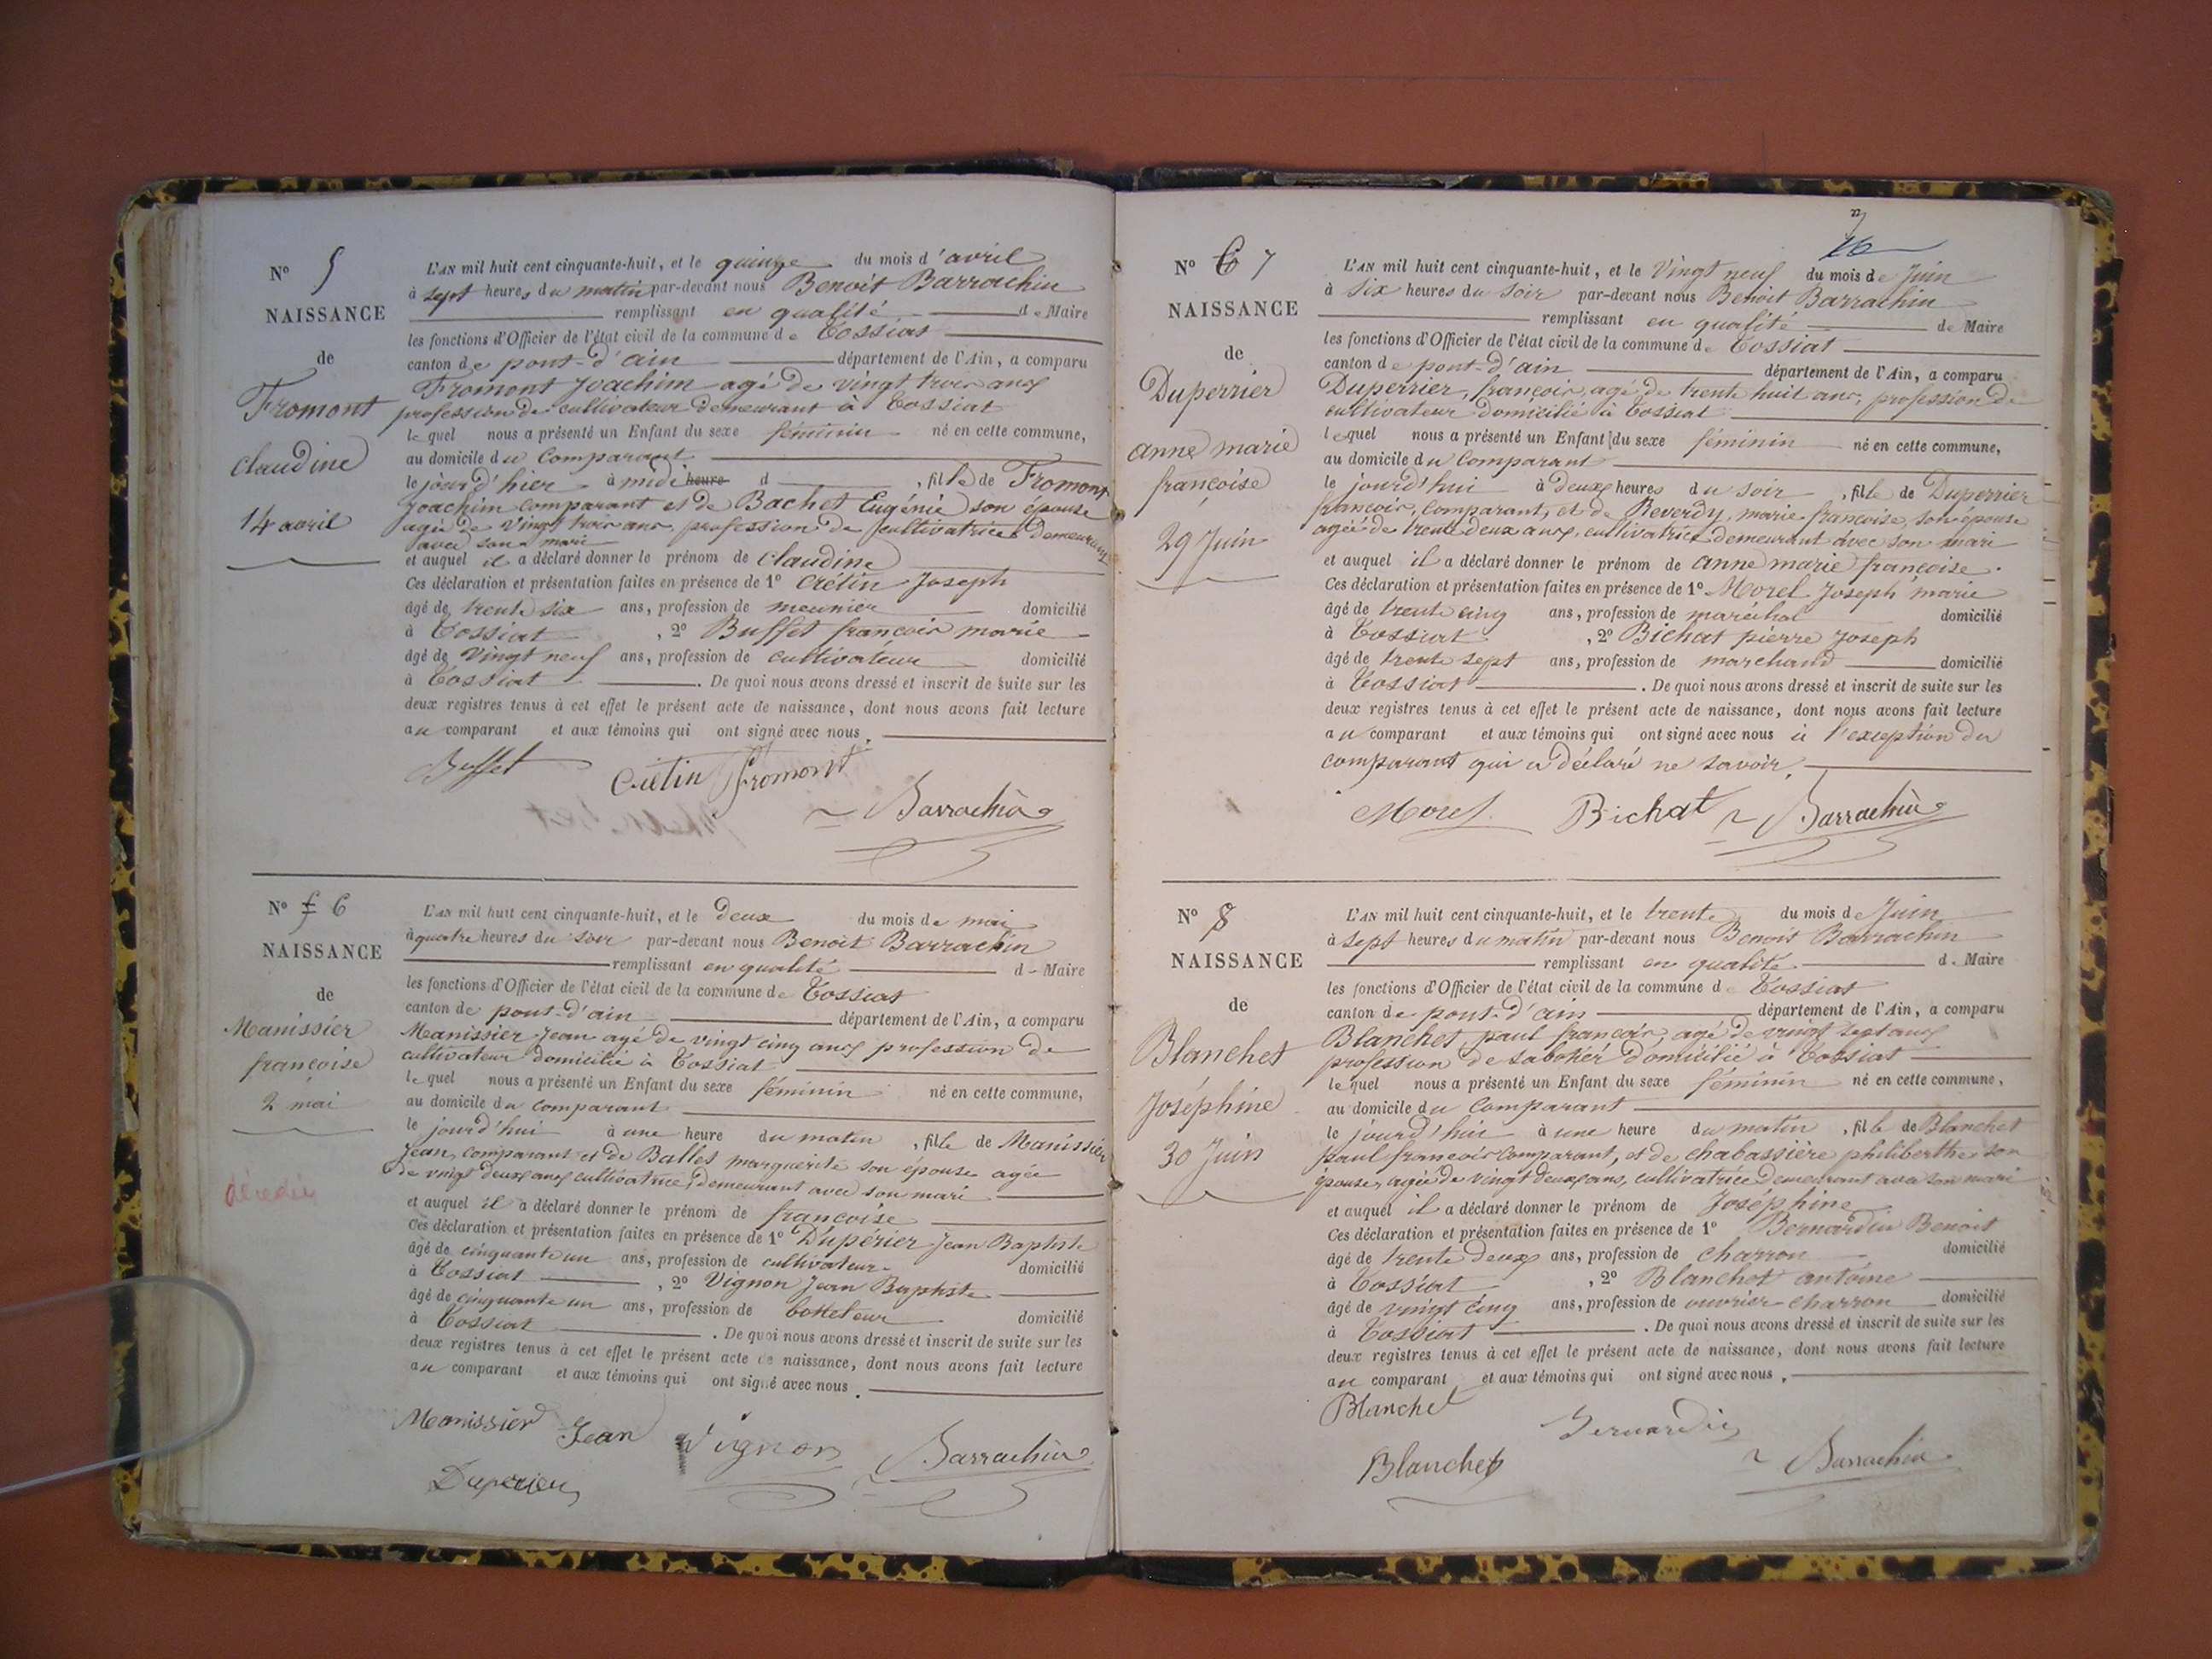 N° 5
NAISSANCE
de
Fromont
claudine
14 avril
L'AN mil huit cent cinquante-huit, et le quinze du mois d'avril
à sept heures du matin par-devant nous Benoit Barrachin
remplissant en qualité de Maire
les fonctions d'Officier de l'état civil de la commune de Tossiat
canton de pont-d'ain département de l'Ain, a comparu
Fromont Joachim agé de vingt trois ans
profession de cultivateur demeurant à Tossiat
lequel nous a présenté un Enfant du sexe féminin né en cette commune,
au domicile du Comparant
le jour d'hier à midi heure d , fille de Fromont
Joachim comparant et de Bachet Eugénie son épouse
agée de vingt trois ans, profession de cultivatrice demeurant
avec son mari
et auquel il a déclaré donner le prénom de claudine
Ces déclaration et présentation faites en présence de 1° Crétin Joseph
âgé de trente six ans, profession de meunier domicilié
à Tossiat , 2° Buffet françois marie
âgé de vingt neuf ans, profession de cultivateur domicilié
à Tossiat . De quoi nous avons dressé et inscrit de suite sur les
deux registres tenus à cet effet le présent acte de naissance, dont nous avons fait lecture
au comparant et aux témoins qui ont signé avec nous.
Buffet Crétin Fromont
Barrachin
N° 5 6
NAISSANCE
de
Manissier
françoise
2 mai
L'AN mil huit cent cinquante-huit, et le deux du mois de mai
à quatre heures du soir par-devant nous Benoit Barrachin
remplissant en qualité d - Maire
les fonctions d'Officier de l'état civil de la commune de Tossiat
canton de pont-d'ain département de l'Ain, a comparu
Manissier Jean agé de vingt cinq ans profession de
cultivateur domicilié à Tossiat
lequel nous a présenté un Enfant du sexe féminin né en cette commune,
au domicile du comparant
le jourd'hui à une heure du matin , fille de Manissier
Jean, comparant et de Balles marguerite son épouse agée
de vingt deux ans cultivatrice, demeurant avec son mari
et auquel il a déclaré donner le prénom de françoise
Ces déclaration et présentation faites en présence de 1° Dupérier Jean Baptiste
âgé de cinquante un ans, profession de cultivateur domicilié
à Tossiat , 2° Vignon Jean Baptiste
âgé de cinquante un ans, profession de botteleur domicilié
à Tossiat . De quoi nous avons dressé et inscrit de suite sur les
deux registres tenus à cet effet le présent acte de naissance, dont nous avons fait lecture
au comparant et aux témoins qui ont signé avec nous.
Manissier Jean Vignon Barrachin
Duperier
27
26
N° 6 7
NAISSANCE
de
Duperrier
anne marie
françoise
29 Juin
L'AN mil huit cent cinquante-huit, et le Vingt neuf du mois de Juin
à six heures du soir par-devant nous Benoit Barrachin
remplissant en qualité de Maire
les fonctions d'Officier de l'état civil de la commune de Tossiat
canton de pont-d'ain département de l'Ain, a comparu
Duperrier, françois, agé de trente huit ans, profession de
cultivateur domicilié à Tossiat
lequel nous a présenté un Enfant du sexe féminin né en cette commune,
au domicile du Comparant
le jourd'hui à deux heures du soir , fille de Duperrier
françois, comparant, et de Reverdy, marie françoise, son épouse
agée de trente deux ans, cultivatrice demeurant avec son mari
et auquel il a déclaré donner le prénom de anne marie françoise.
Ces déclaration et présentation faites en présence de 1° Morel Joseph marie
âgé de trente cinq ans, profession de maréchal domicilié
à Tossiat , 2° Bichat pierre Joseph
âgé de trente sept ans, profession de marchand domicilié
à Tossiat . De quoi nous avons dressé et inscrit de suite sur les
deux registres tenus à cet effet le présent acte de naissance, dont nous avons fait lecture
au comparant et aux témoins qui ont signé avec nous à l'exception du
comparant qui a déclaré ne savoir.
Morel Bichat Barrachin
N° 8
NAISSANCE
de
Blanchet
Joséphine
30 Juin
L'AN mil huit cent cinquante-huit, et le trente du mois de Juin
à sept heures du matin par-devant nous Benoit Barrachin
remplissant en qualité de Maire
les fonctions d'Officier de l'état civil de la commune de Tossiat
canton de pont-d'ain département de l'Ain, a comparu
Blanchet, paul françois, agé de vingt sept ans
profession de sabotier domicilié à Tossiat
lequel nous a présenté un Enfant du sexe féminin né en cette commune,
au domicile du Comparant
le jourd'hui à une heure du matin , fille de Blanchet
paul françois comparant, et de chabassière philiberthe, son
épouse, agée de vingt deux ans, cultivatrice demeurant avec son mari
et auquel il a déclaré donner le prénom de Joséphine
Ces déclaration et présentation faites en présence de 1° Bernardin Benoit
âgé de trente deux ans, profession de charron domicilié
à Tossiat , 2° Blanchet antoine
âgé de vingt cinq ans, profession de ouvrier charron domicilié
à Tossiat . De quoi nous avons dressé et inscrit de suite sur les
deux registres tenus à cet effet le présent acte de naissance, dont nous avons fait lecture
au comparant et aux témoins qui ont signé avec nous.
Blanchet
Bernardin
Blanchet Barrachin